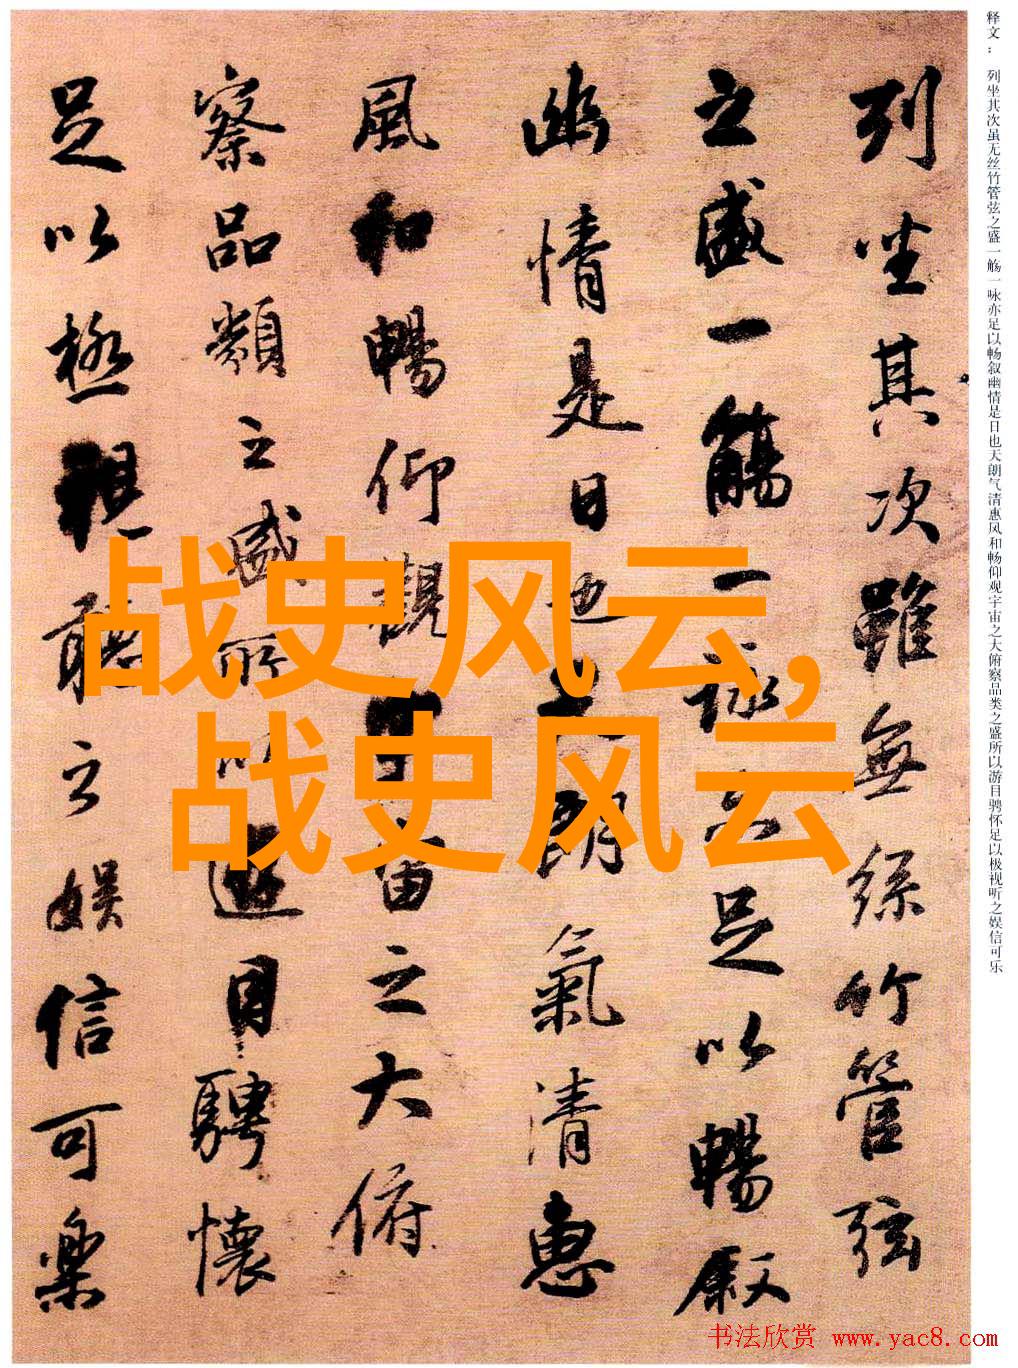 释文：列坐其次虽无丝竹管弦之盛一觞一咏亦足以畅叙幽情是日也天朗气清惠风和畅仰观宇宙之大俯察品类之盛所以游目骋怀足以极视听之娱信可乐
列坐其次雖無絲竹管弦
之盛一觴一詠亦足以暢叙
幽情是日也天朗氣清惠
風和暢仰觀宇宙之大俯
察品類之盛所以遊目騁懷
足以極視聽之娱信可樂
战史风云,
战史风云
书法欣赏 www.yac8.com